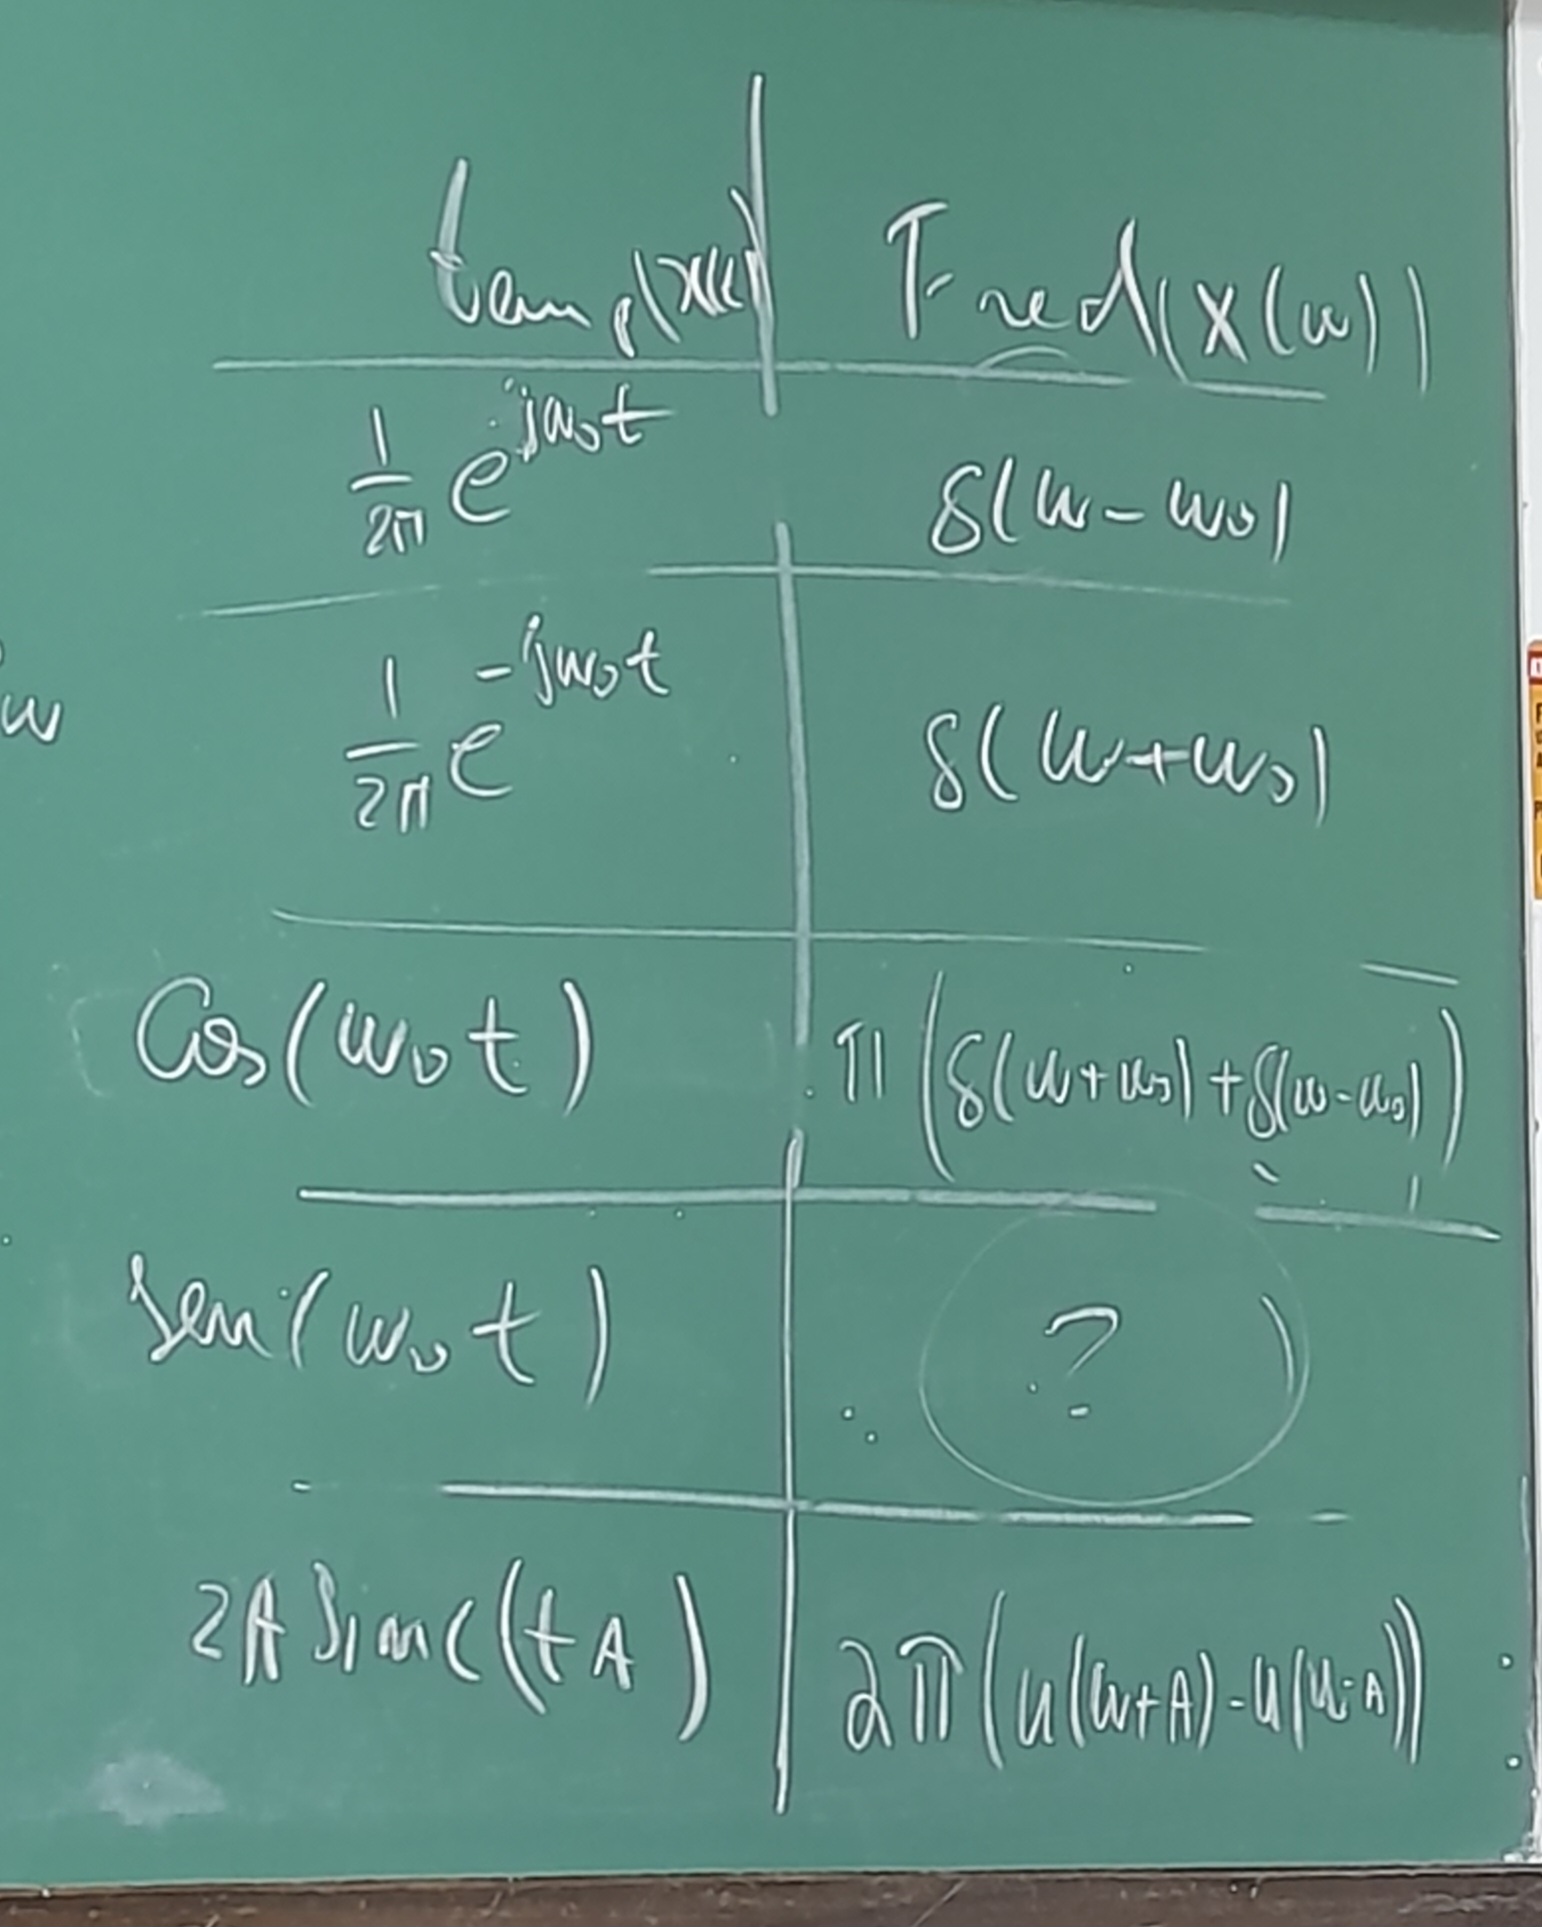 temp(x(t)) Freq(X(w))
1/2π e^jw₀t δ(w - w₀)
1/2π e^-jw₀t δ(w + w₀)
w
Cos(w₀t) π(δ(w+w₀)+δ(w-w₀))
sen(w₀t) ?
2A Sinc(tA) 2π(u(w+A)-u(w-A))